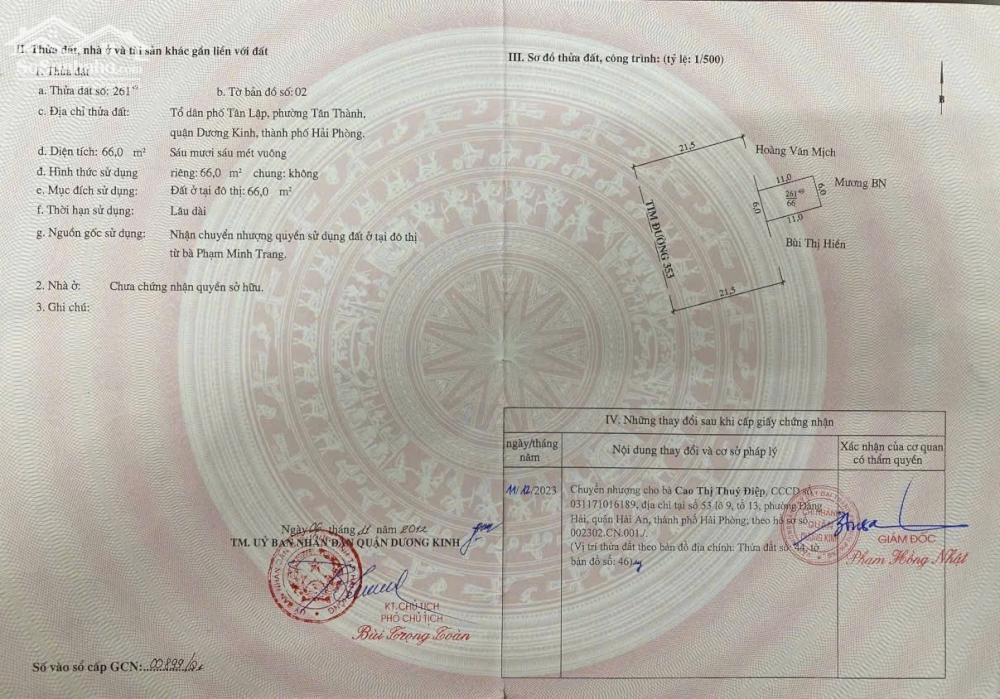 II. Thửa đất, nhà ở và tài sản khác gắn liền với đất
1. Thửa đất
a. Thửa đất số: 261
b. Tờ bản đồ số: 02
c. Địa chỉ thửa đất: Tổ dân phố Tân Lập, phường Tân Thành,
quận Dương Kinh, thành phố Hải Phòng.
d. Diện tích: 66,0 m² Sáu mươi sáu mét vuông
đ. Hình thức sử dụng riêng: 66,0 m² chung: không
e. Mục đích sử dụng: Đất ở tại đô thị: 66,0 m²
f. Thời hạn sử dụng: Lâu dài
g. Nguồn gốc sử dụng: Nhận chuyển nhượng quyền sử dụng đất ở tại đô thị
từ bà Phạm Minh Trang.
2. Nhà ở: Chưa chứng nhận quyền sở hữu.
3. Ghi chú:
Ngày 06 tháng 11 năm 2012
TM. UỶ BAN NHÂN DÂN QUẬN DƯƠNG KINH
KT.CHỦ TỊCH
PHÓ CHỦ TỊCH
Bùi Trọng Toàn
Số vào sổ cấp GCN: 00899
III. Sơ đồ thửa đất, công trình: (tỷ lệ: 1/500)
B
21,5
Hoàng Văn Mịch
11,0
Mương BN
6,0
261
66
6,0
11,0
Bùi Thị Hiền
TIM ĐƯỜNG 353
21,5
IV. Những thay đổi sau khi cấp giấy chứng nhận
ngày/tháng
năm
Nội dung thay đổi và cơ sở pháp lý
Xác nhận của cơ quan
có thẩm quyền
11/12/2023
Chuyển nhượng cho bà Cao Thị Thuý Điệp, CCCD số
031171016189, địa chỉ tại số 53 lô 9, tổ 13, phường Đằng
Hải, quận Hải An, thành phố Hải Phòng; theo hồ sơ số
002302.CN.001./.
(Vị trí thửa đất theo bản đồ địa chính: Thửa đất số: 44, tờ
bản đồ số: 46)
GIÁM ĐỐC
Phạm Hồng Nhật